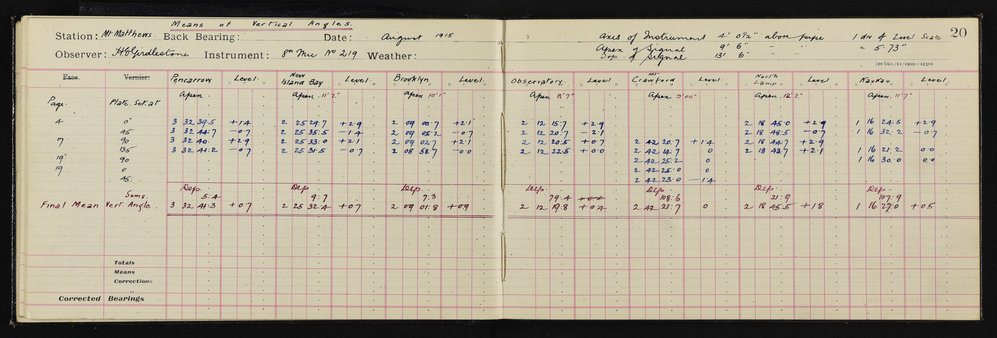 Means of Vertical Angles.
Station: Mt Matthews. Back Bearing: Date: August 1915 ? Axis of Instrument 4' 0½" above pipe 1 div of Level Scale 20
Observer: H Girdlestone Instrument: No 219 Weather: Apex of Signal 9' 6" " " = 5.73"
Top of Signal 13' 6"
Face. Vernier. Pencarrow Level. New Island Bay Level. Brooklyn Level. Observatory Level Mt Crawford Level North Level Kaukau. Level.
Page. Plate. Set. at Apex. Apex. 11' 2" Apex. 10' 1" Apex 18' 7" Apex 9' 00" Apex. 12' 2" Apex. 11' 7"
4 0° 3 32 39.5 +1.4 2 25 29.7 +2.9 2 09 00.7 +2.1 2 12 15.7 +2.9 2 18 45.0 +2.9 1 16 24.5 +2.9
45 3 32 44.7 -0.7 2 25 35.5 -1.4 2 09 05.2 -0.7 2 12 20.7 -2.1 2 18 48.5 -0.7 1 16 32.2 -0.7
7 90 3 32 40. +2.9 2 25 33.0 +2.1 2 09 02.7 +2.1 2 12 20.5 +0.7 2 42 20.7 +1.4 2 18 44.7 +2.9
135 3 32 41.2 -0.7 2 25 31.5 -0.7 2 08 58.7 -0.0 2 12 22.5 +0.0 2 42 14.7 0 2 18 43.7 +2.1 1 16 21.2 0.0
19 90 2 42 25.2 0 1 16 30.0 0.0
19 0 2 42 25.0 0
45 2 42 23.0 -1.4
Dep Dep Dep. Dep Dep. Dep Dep.
Sums. 5.4 9.7 7.3 79.4 108.6 21.9 107.9
Final Mean Vert Angle. 3 32 41.3 +0.7 2 25 32.4 +0.7 2 09 01.8 +0.9 2 12 19.8 +0.4 2 42 21.7 0 2 18 45.5 +1.8 1 16 27.0 +0.5
Totals
Means
Corrections
Corrected Bearings